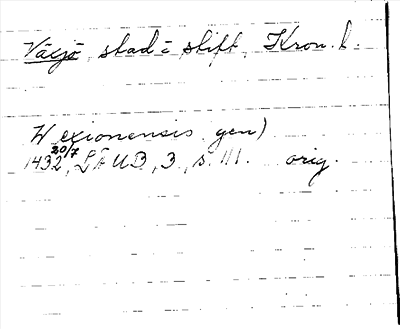 Växjö, stad i stift, Kron. l.
Wexionensis gen)
1432 20/7, LÄUB, 3, s. 111. orig.